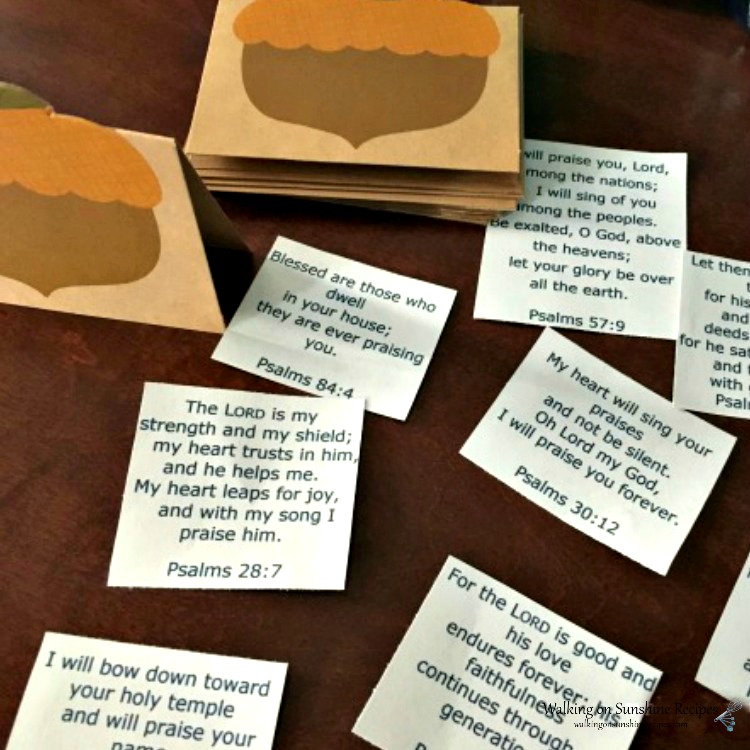 will praise you, Lord,
among the nations;
I will sing of you
among the peoples.
Be exalted, O God, above
the heavens;
let your glory be over
all the earth.
Psalms 57:9
Let them
for his
and
deeds
for he sat
and
with
Blessed are those who
dwell
in your house;
they are ever praising
you.
Psalms 84:4
My heart will sing your
praises
and not be silent.
Oh Lord my God,
I will praise you forever.
Psalms 30:12
The LORD is my
strength and my shield;
my heart trusts in him,
and he helps me.
My heart leaps for joy,
and with my song I
praise him.
Psalms 28:7
For the LORD is good and
his love
endures forever; his
faithfulness
continues through
I will bow down toward
your holy temple
and will praise your
name
Walking on Sunshine Recipes
walkingonsunshinerecipes.com